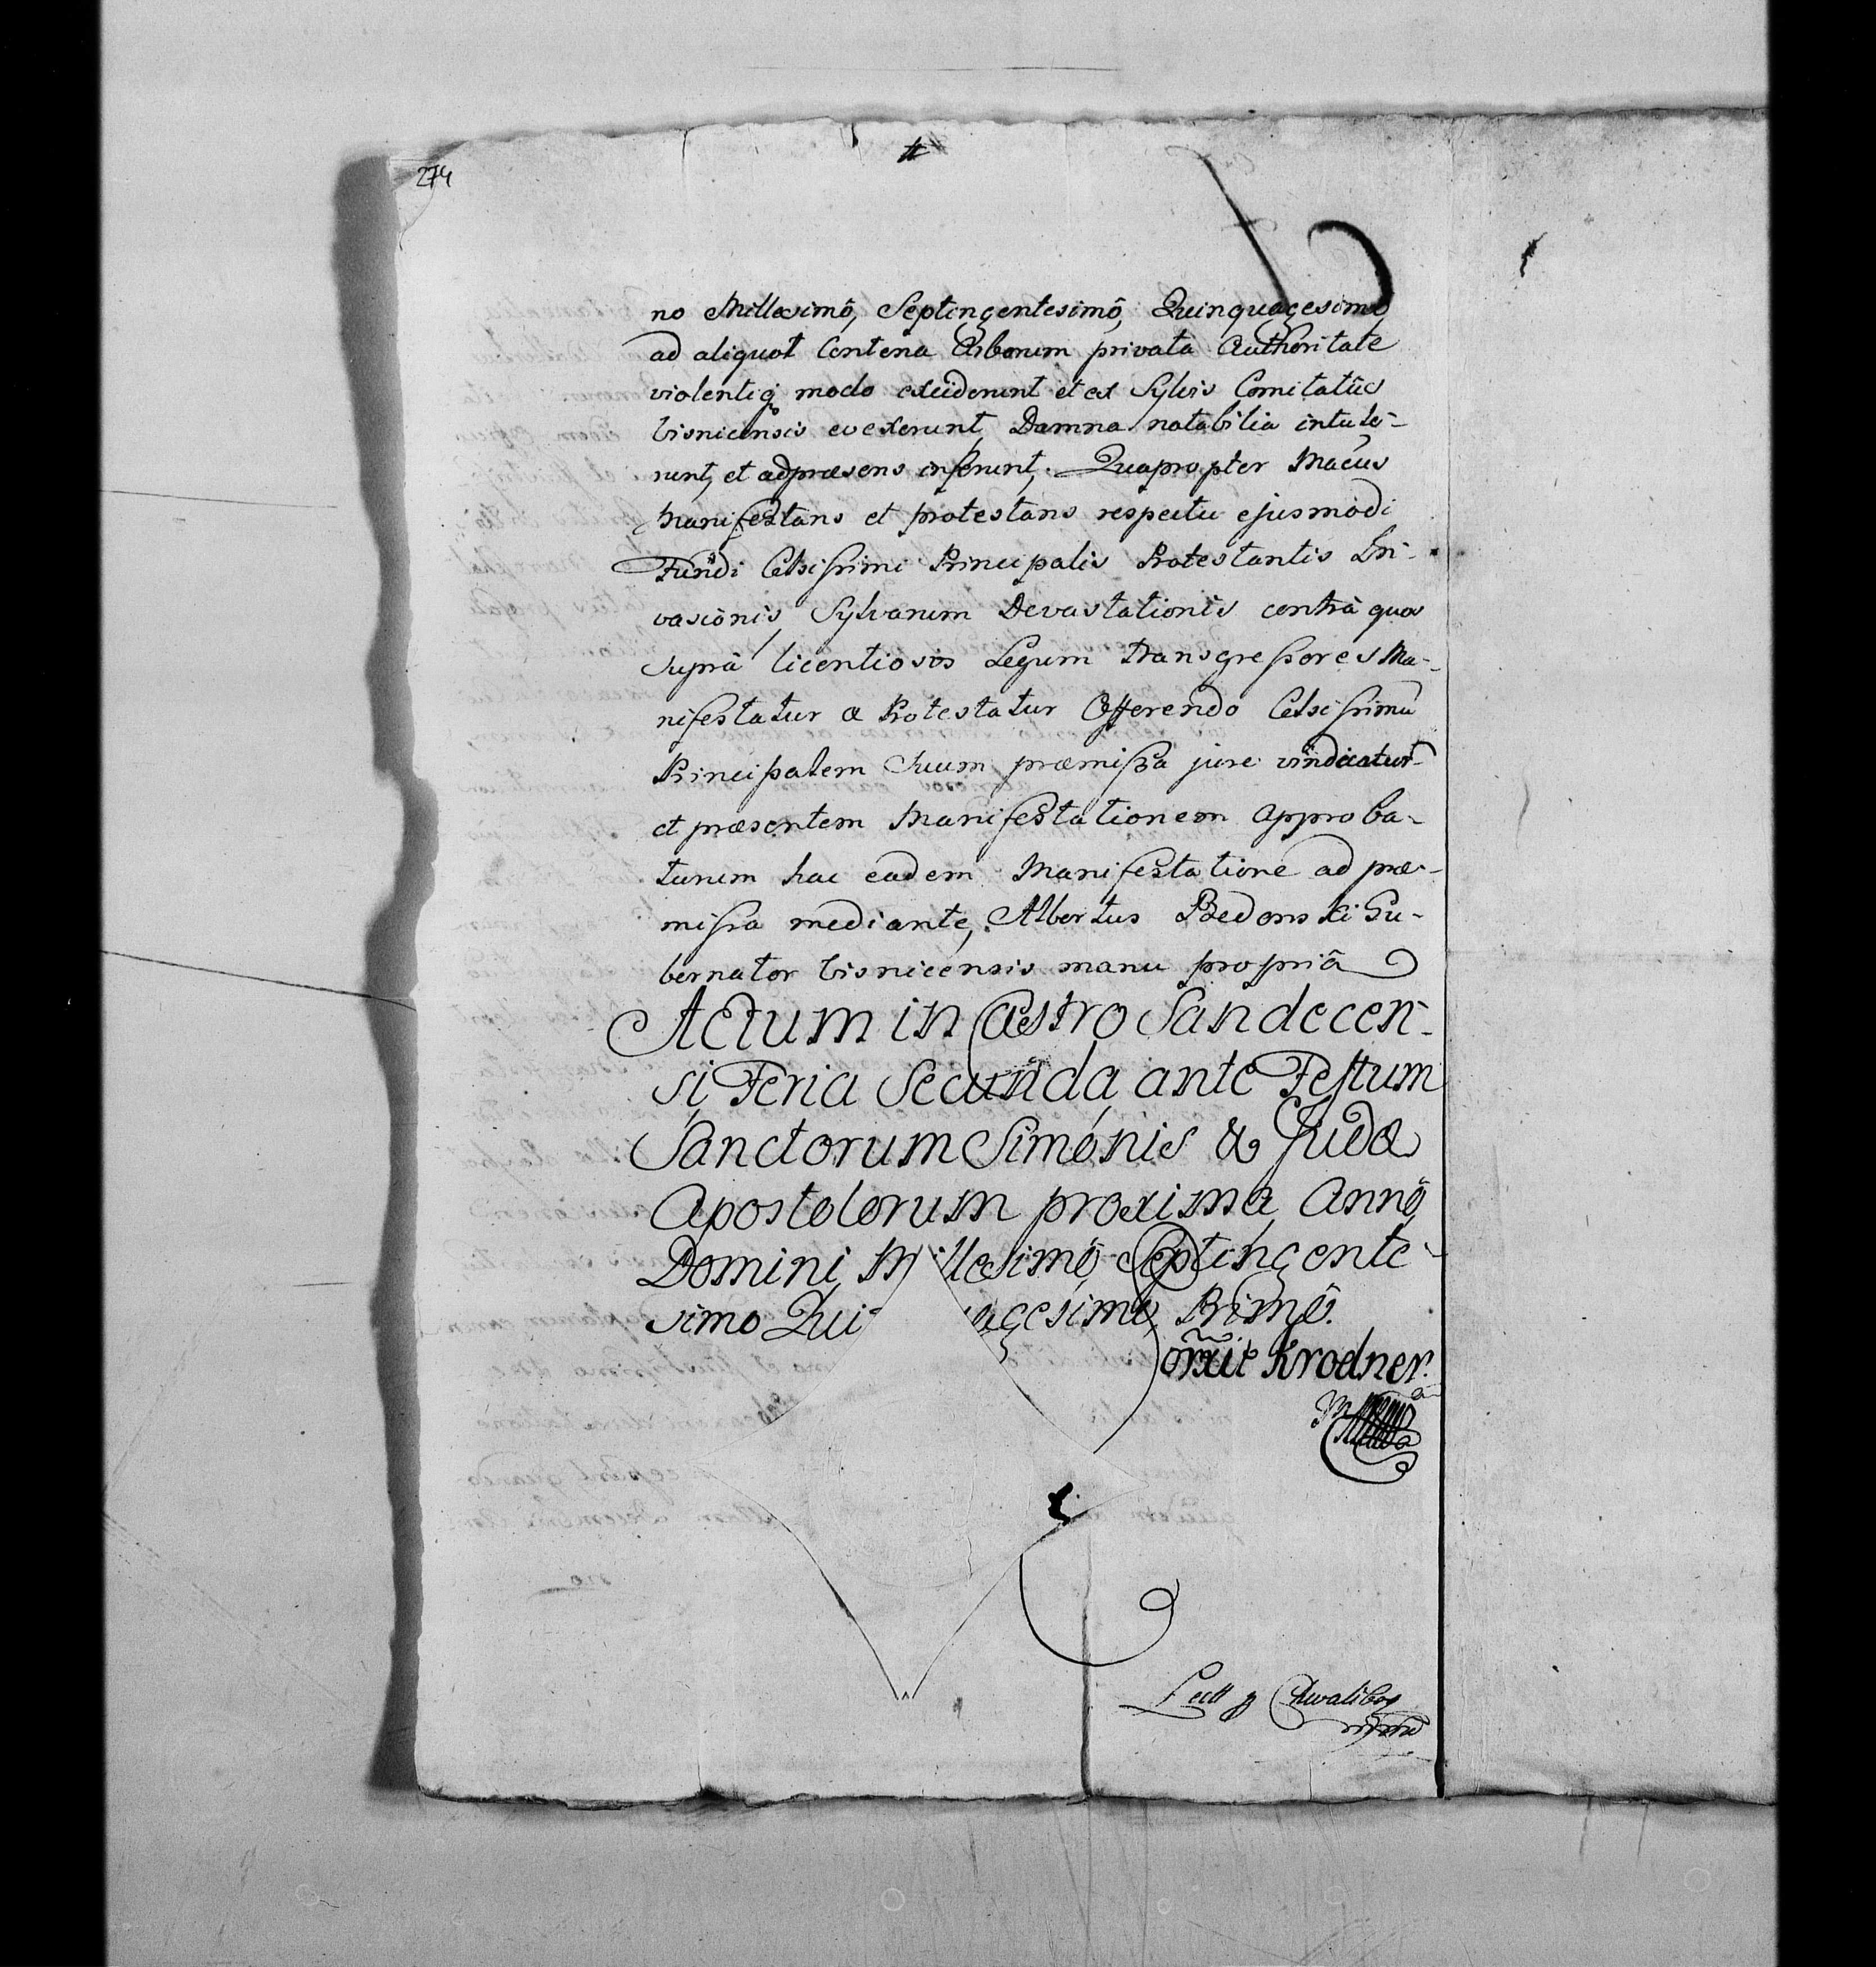 274
no Millesimô, Septingentesimô, Quinquagesimô
ad aliquot Centena Arborum privata Authoritate
violentiqȝ modo exciderunt et ex Sylvis Comitatûs
Visnicensis evexerunt, Damna notabilia intule-
runt, et adpræsens inferunt. Quapropter Macus
Manifestans et protestans respectu ejusmodi
Fundi Celsissimi Principalis Protestantis In-
vasionis, Sylvarum Devastationis contrà quos
suprà licentiosos Legum Transgressores Ma-
nifestatur & Protestatur Offerendo Celsissimū
Principalem Suum præmissa jure vindicatur
et præsentem Manifestationem approba-
turum hac eadem Manifestatione ad præ-
missa mediante, Albertus Bedonski Gu-
bernator Visnicensis manu propriâ
Actum in Castro Sandecen-
si Feria Secunda ante Festum
Sanctorum Simonis & Judæ
Apostolorum proxima, Annô
Domini, Millesimô Septingente-
simo Qui agesimô, Primô.
Krodner
Lect p Chwalibog
mpria